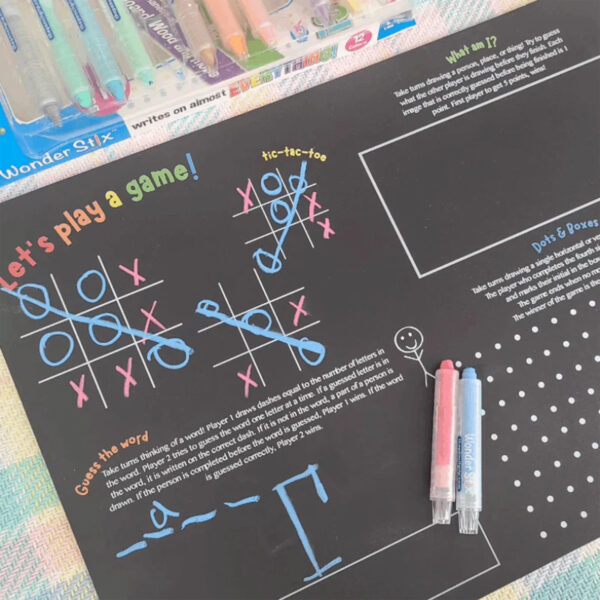 Board Wood and
12
writes on almost EVERYTHING!
Wonder Stix
Let's play a game!
tic-tac-toe
What am I?
Take turns drawing a person, place, or thing! Try to guess
what the other player is drawing before they finish. Each
image that is correctly guessed before being finished is 1
point. First player to get 5 points, wins!
Dots & Boxes
Take turns drawing a single horizontal or
The player who completes the fourth
and marks their initial in the
The game ends when no
The winner of the game is the
X
X
X
X
X
X
X
X
X
X
Guess the word
Take turns thinking of a word! Player 1 draws dashes equal to the number of letters in
the word. Player 2 tries to guess the word one letter at a time. If a guessed letter is in
the word, it is written on the correct dash. If it is not in the word, a part of a person is
drawn. If the person is completed before the word is guessed, Player 1 wins. If the word
is guessed correctly, Player 2 wins.
a
Wonder Stix